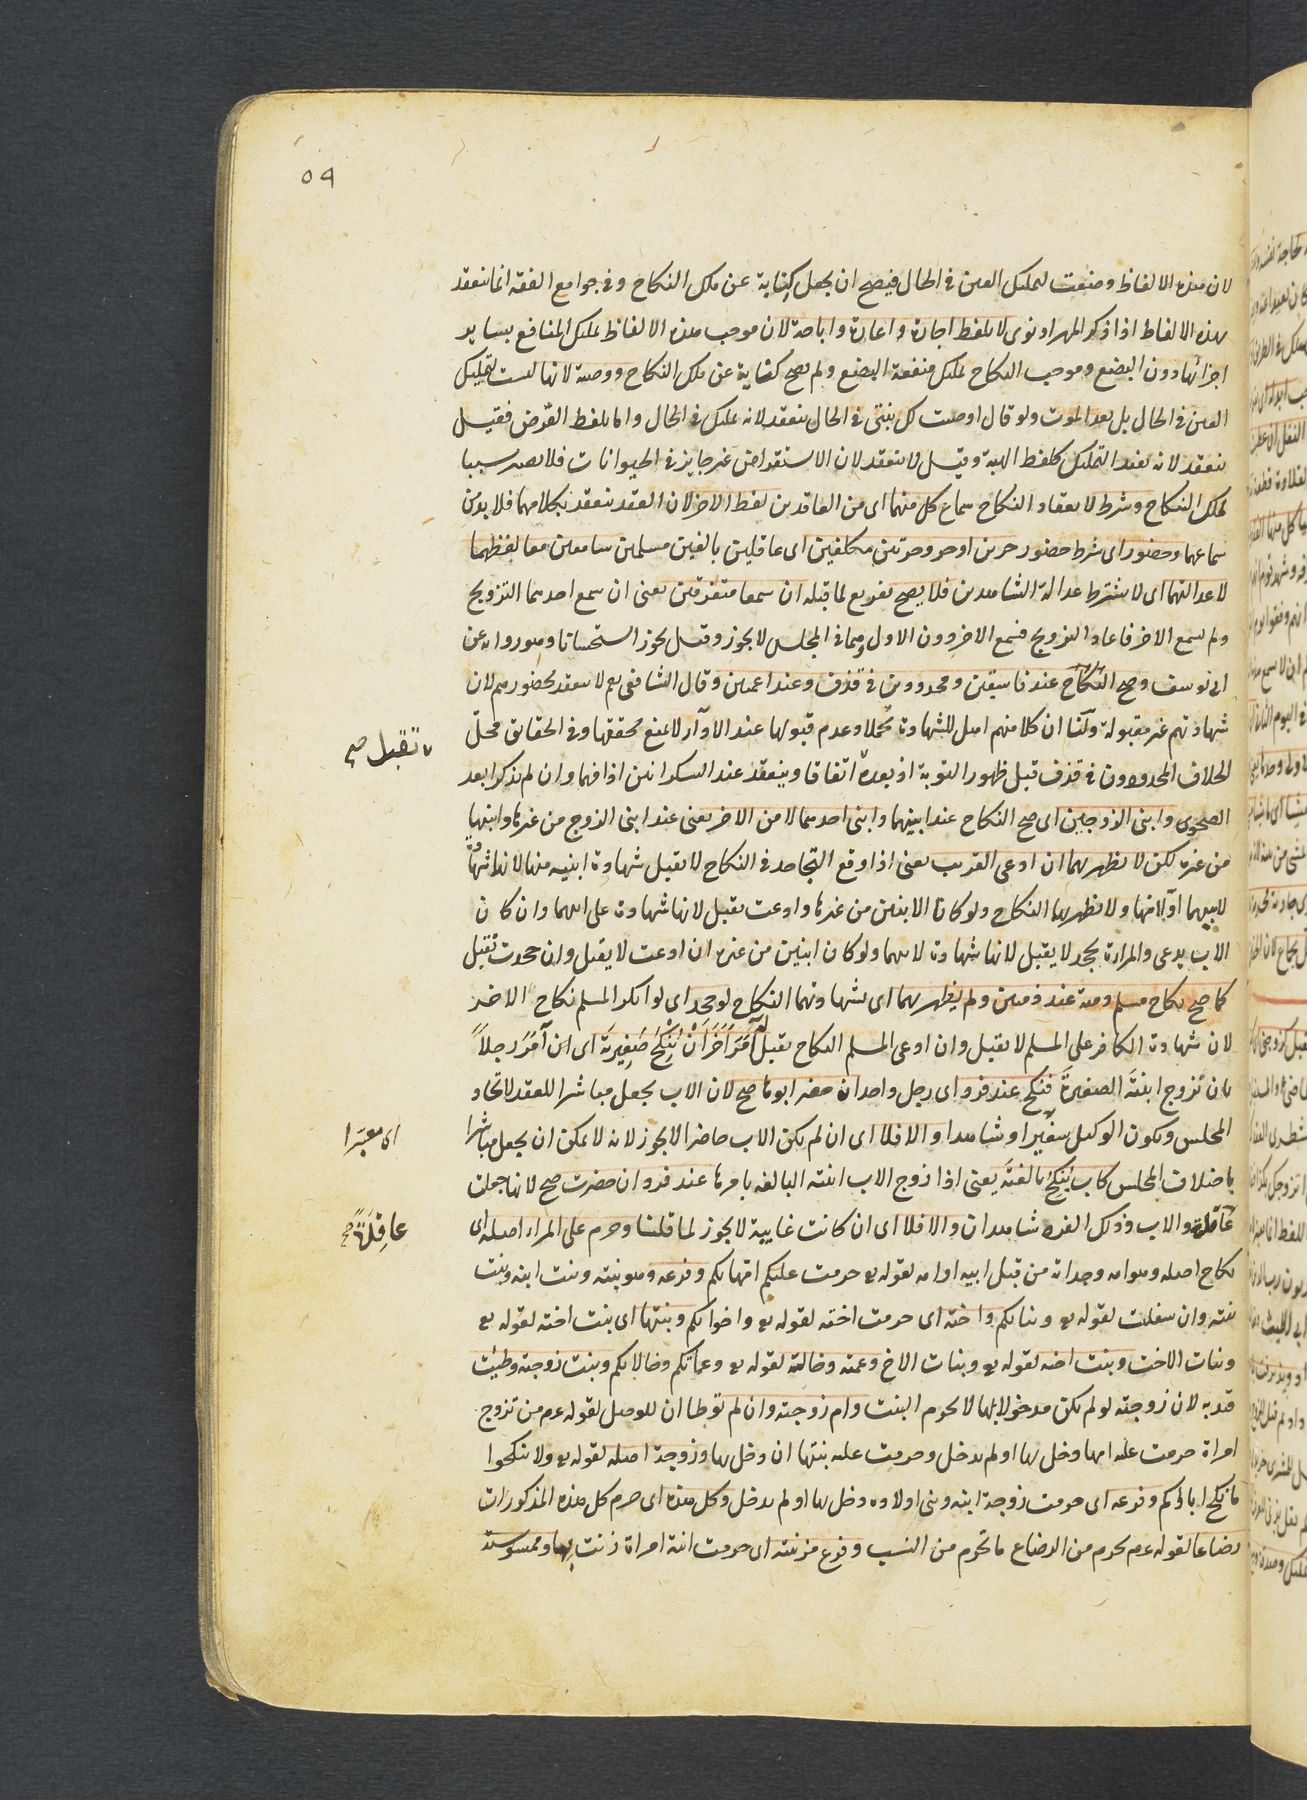 ٥٩
لان هذه الالفاظ وضعت لتمليك العين في الحال فيصح ان يجعل كناية عن ملك النكاح وفي جوامع الفقه انما ينعقد
بهذه الالفاظ اذا ذكر المهر او نوى لا بلفظ اجارة واعارة واباحة لان موجب هذه الالفاظ تمليك المنافع بساير
اجزائها دون البضع وموجب النكاح تمليك منفعة البضع ولم يصح كناية عن ملك النكاح ووصية لانها ليست لتمليك
العين في الحال بل بعد الموت ولو قال اوصيت لك بنتي في الحال ينعقد لانه تمليك في الحال واما بلفظ القرض فقيل
ينعقد لانه يفيد التمليك كلفظ الهبة وقيل لا ينعقد لان الاستقراض غير جايز في الحيوانات فلا يصير سببا
لملك النكاح وشرط لانعقاد النكاح سماع كل منهما اى من العاقدين لفظ الاخر لان العقد ينعقد بكلامهما فلا بد من
سماعهما وحضور اى شرط حضور حرين او حر وحرتين مكلفين اى عاقلين بالغين مسلمين سامعين معا لفظهما
لا عدالتهما اى لا يشترط عدالة الشاهدين فلا يصح تفريع لما قبله ان سمعا متفرقين يعنى ان سمع احدهما التزويج
ولم يسمع الاخر فاعاد التزويج فسمع الاخر دون الاول وهما في المجلس لا يجوز وقيل يجوز استحسانا وهو رواية عن
ابي يوسف وصح النكاح عند فاسقين ومحدودين في قذف وعند اعميين وقال الشافعي رح لا ينعقد بحضورهم لان
شهادتهم غير مقبولة ولنا ان كلا منهم اهل للشهادة تحملا وعدم قبولها عند الاداء لا يمنع تحققها وفي الحقائق محل
الخلاف المحدودون في قذف قبل ظهور التوبة اذ بعده اتفاقا وينعقد عند السكرانين اذا فهما وان لم يذكرا بعد
الصحو وابني الزوجين اى صح النكاح عند ابنيهما وابني احدهما لا من الاخر يعنى عند ابنى الزوج من غيرها وابنيها
من غيره لكن لا يظهر بهما ان ادعى القريب يعنى اذا وقع التجاحد في النكاح لا تقبل شهادة ابنيه منها لانها شهادة
لابيهما او لامهما ولا يظهر بها النكاح ولو كانا الابنين من غيرها وادعت تقبل لانها شهادة على ابيهما وان كان
الاب يدعى والمرأة تجحد لا يقبل لانها شهادة لابيهما ولو كان ابنين من غيره ان ادعت لا يقبل وان جحدت تقبل
كما صح نكاح مسلم ذمية عند ذميين ولم يظهر بهما اى بشهادتهما النكاح لو جحد اى لو انكر المسلم نكاح الاخر
لان شهادة الكافر على المسلم لا يقبل وان ادعى المسلم النكاح يقبل أمر آخر أن ينكح صغيرته اى ان أمر رجلا
بان تزوج ابنته الصغيرة فنكح عند فرد اى رجل واحد ان حضر ابوها صح لان الاب يجعل مباشرا للعقد لاتحاد
المجلس ويكون الوكيل سفيرا وشاهدا والا فلا اى ان لم يكن الاب حاضرا لا يجوز لانه لا يمكن ان يجعل مباشرا
باختلاف المجلس كاب ينكح بالغته يعنى اذا زوج الاب ابنته البالغة بامرها عند فرد ان حضرت صح لانها جعلت
عاقدة والاب وذلك الفرد شاهدان والا فلا اى ان كانت غايبة لا يجوز لما قلنا وحرم على المراء اصله اى
نكاح اصله وهو امه وجداته من قبل ابيه او امه لقوله تع حرمت عليكم امهاتكم وفرعه وهو بنته وبنت ابنه وبنت
بنته وان سفلت لقوله تع وبناتكم واخته اى حرمت اخته لقوله تع واخواتكم وبنتها اى بنت اخته لقوله تع
وبنات الاخت وبنت اخيه لقوله تع وبنات الاخ وعمته وخالته لقوله تع وعماتكم وخالاتكم وبنت زوجته وطئت
قيد به لان زوجته لو لم يكن مدخولا بها لا تحرم البنت وام زوجته وان لم توطا ان للوصل لقوله عم من تزوج
امراة حرمت عليه امها دخل بها او لم يدخل وحرمت عليه بنتها ان دخل بها وزوجة اصله لقوله تع ولا تنكحوا
ما نكح اباؤكم وفرعه اى حرمت زوجة ابنه وبنى اولاده دخل بها او لم يدخل وكل هذه اى حرم كل هذه المذكورات
رضاعا لقوله عم يحرم من الرضاع ما يحرم من النسب وفرع مزنيته اى حرمت ابنة امراة زنيت بها وممسوسته
لا تقبل صح
اى معبرا
عاقلة صح